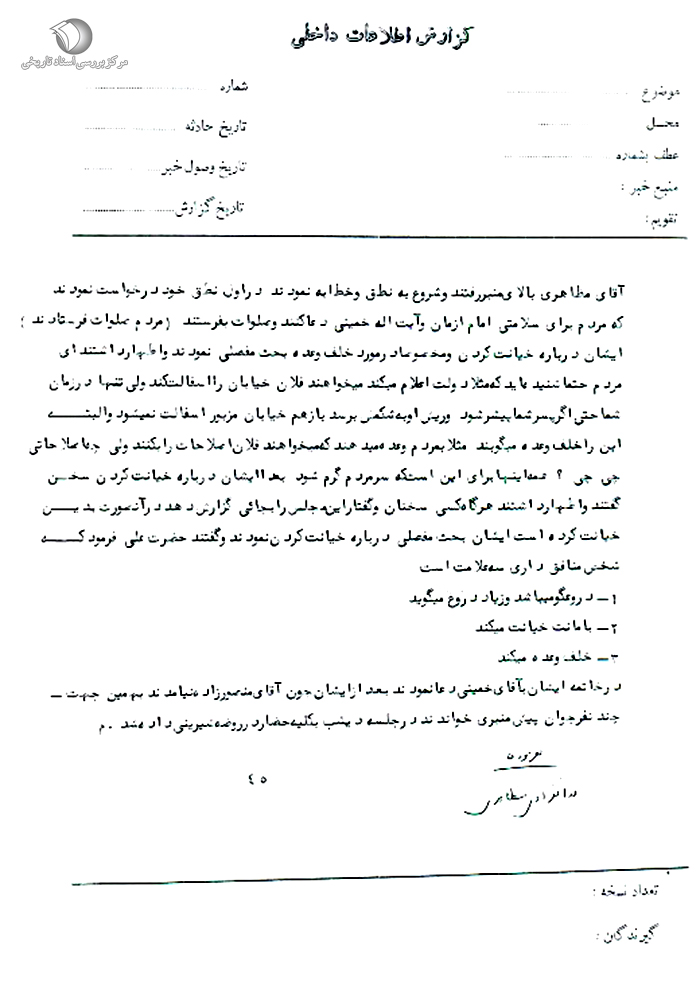 مرکز بررسی اسناد تاریخی
گزارش اطلاعات داخلی
موضوع
محل
عطف بشماره
منبع خبر :
تقویم:
شماره
تاریخ حادثه
تاریخ وصول خبر
تاریخ گزارش
آقای مظاهری بالای منبر رفتند و شروع به نطق و خطابه نمودند در اول نطق خود درخواست نمودند
که مردم برای سلامتی امام زمان و آیت اله خمینی دعا کنند و صلوات بفرستند (مردم صلوات فرستادند)
ایشان درباره خیانت کردن و مخصوصا در مورد خلف وعده بحث مفصلی نمودند و اظهار داشتند ای
مردم حتما شنیده اید که مثلا دولت اعلام میکند میخواهند فلان خیابان را اسفالت کند ولی نه تنها در زمان
شما حتی اگر پسر شما پیر شود و ریش او به شکمش برسد باز هم خیابان مزبور اسفالت نمیشود و البته
این را خلف وعده میگویند مثلا بمردم وعده میدهند که میخواهند فلان اصلاحات را بکنند ولی چه اصلاحاتی
چی چی ؟ همه اینها برای این است که سر مردم گرم شود بعدا ایشان درباره خیانت کردن سخن
گفتند و اظهار داشتند هرگاه کسی سخنان و گفتار این مجلس را بجائی گزارش دهد در آنصورت بدین
خیانت کرده است ایشان بحث مفصلی درباره خیانت کردن نمودند و گفتند حضرت علی فرمود که
شخص منافق داری سه علامت است
۱- دروغگو میباشد و زیاد دروغ میگوید
۲- بامانت خیانت میکند
۳- خلف وعده میکند
در خاتمه ایشان بآقای خمینی دعا نمودند بعد از ایشان چون آقای منصورزاده نیامدند بهمین جهت -
چند نفر جوان پیش منبری خواندند در جلسه دیشب بکلیه حضار در روضه شیرینی داده شد . م
۴۵
تعداد نسخه :
گیرندگان :